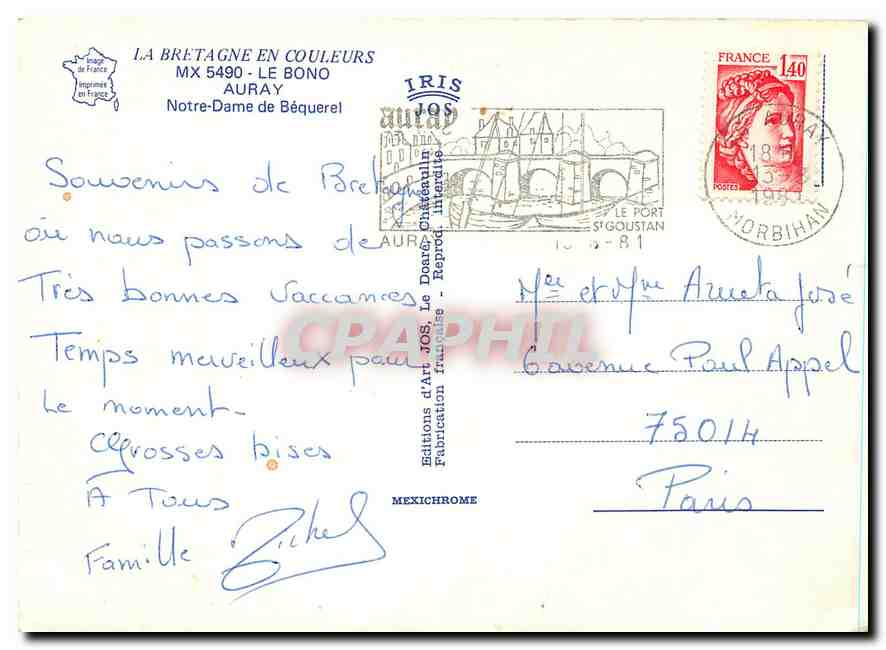 Image
de France
Imprimée
en France
LA BRETAGNE EN COULEURS
MX 5490 - LE BONO
AURAY
Notre-Dame de Béquerel
IRIS
JOS
auray
AURAY
LE PORT
ST GOUSTAN
81
FRANCE
1,40
POSTES
AURAY
18 H
13
MORBIHAN
Souvenirs de Bretagne
où nous passons de
Très bonnes vaccances
Temps merveilleux pour
Le moment-
Grosses bises
A Tous
Famille
Editions d'Art JOS, Le Doaré, Châteaulin
Fabrication française - Reprod. interdite
MEXICHROME
et Mme Azueta José
6 avenue Paul Appel
75014
Paris
CPAPHIL